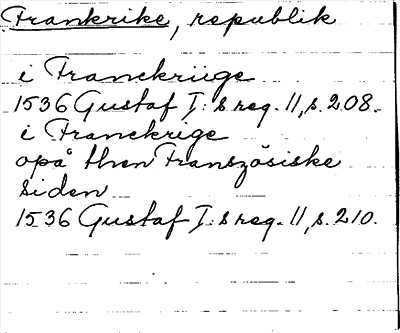 Frankrike, republik
i Franckriige
1536 Gustaf I:s reg. 11, s. 208.
i Franckrige
opå then Franszósiske
Siden
1536 Gustaf I:s reg. 11, s. 210.